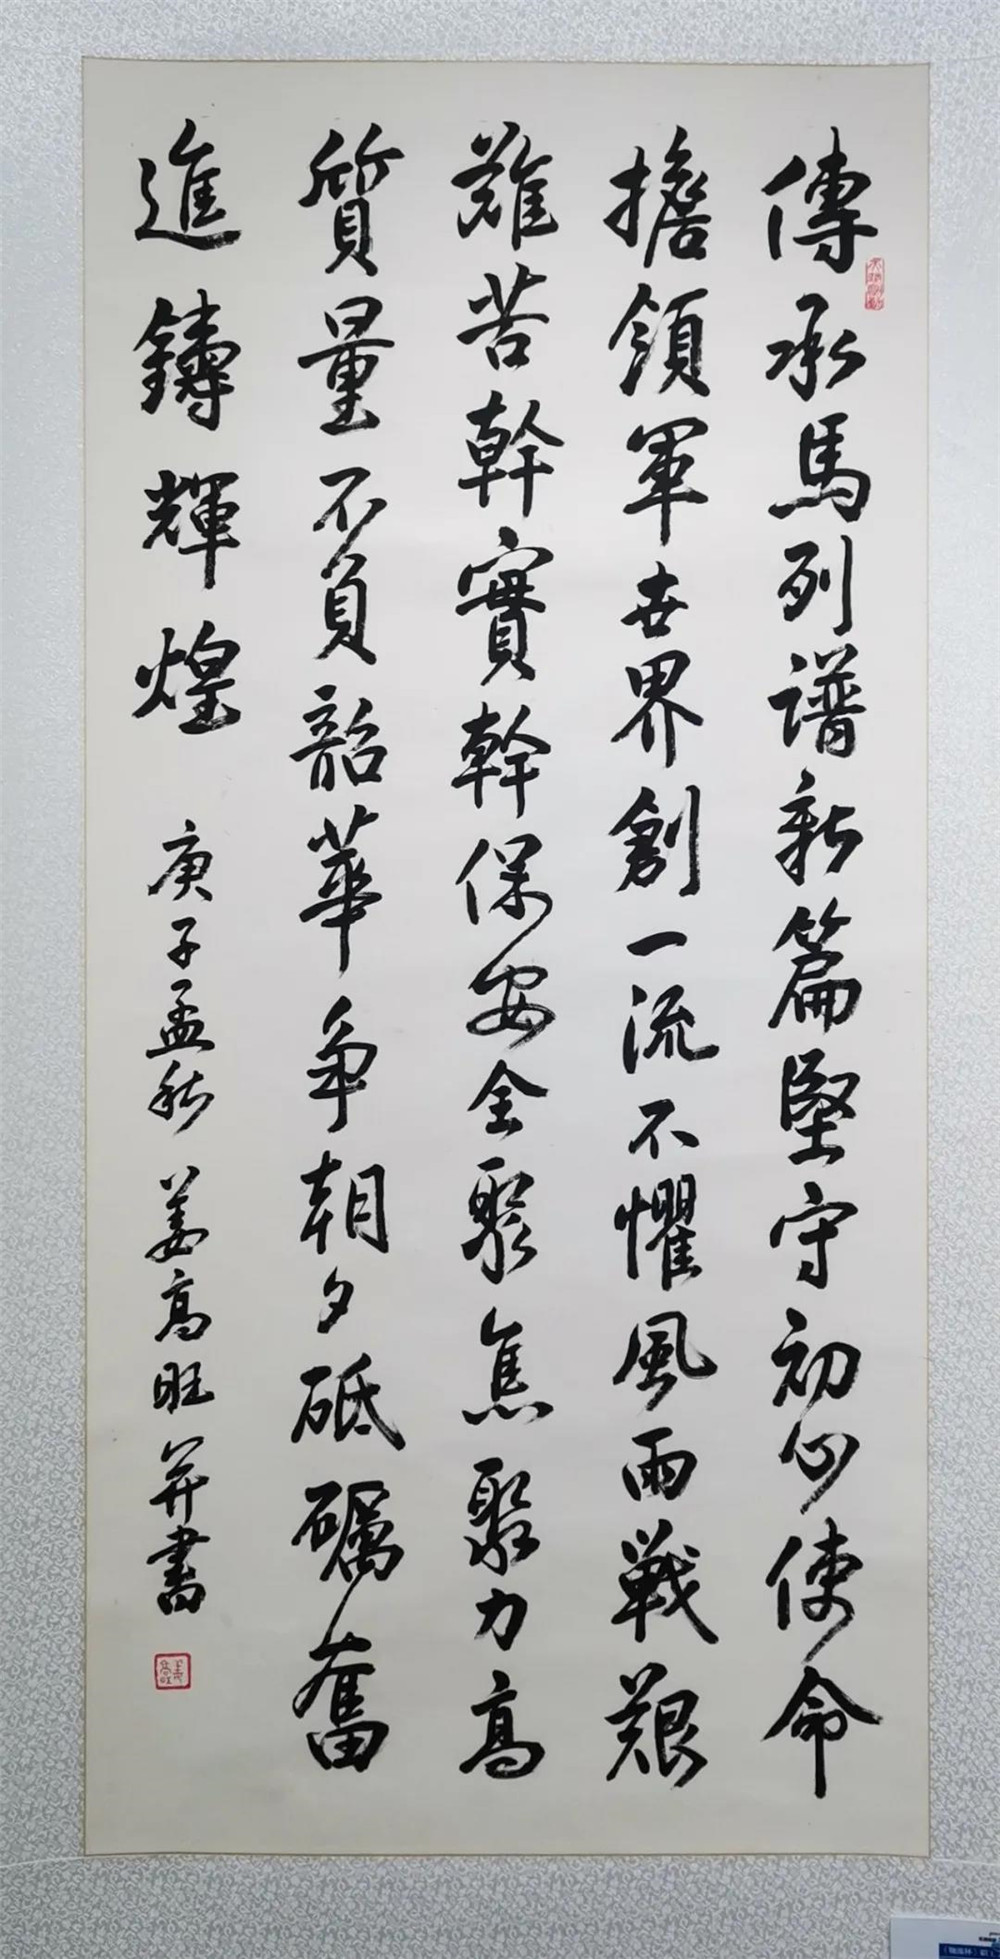 傳承馬列譜新篇堅守初心使命
擔領軍世界創一流不懼風雨戰艱
難苦幹實幹保安全聚焦聚力高
質量不負韶華爭朝夕砥礪奮
進鑄輝煌
庚子孟秋 姜高旺并書